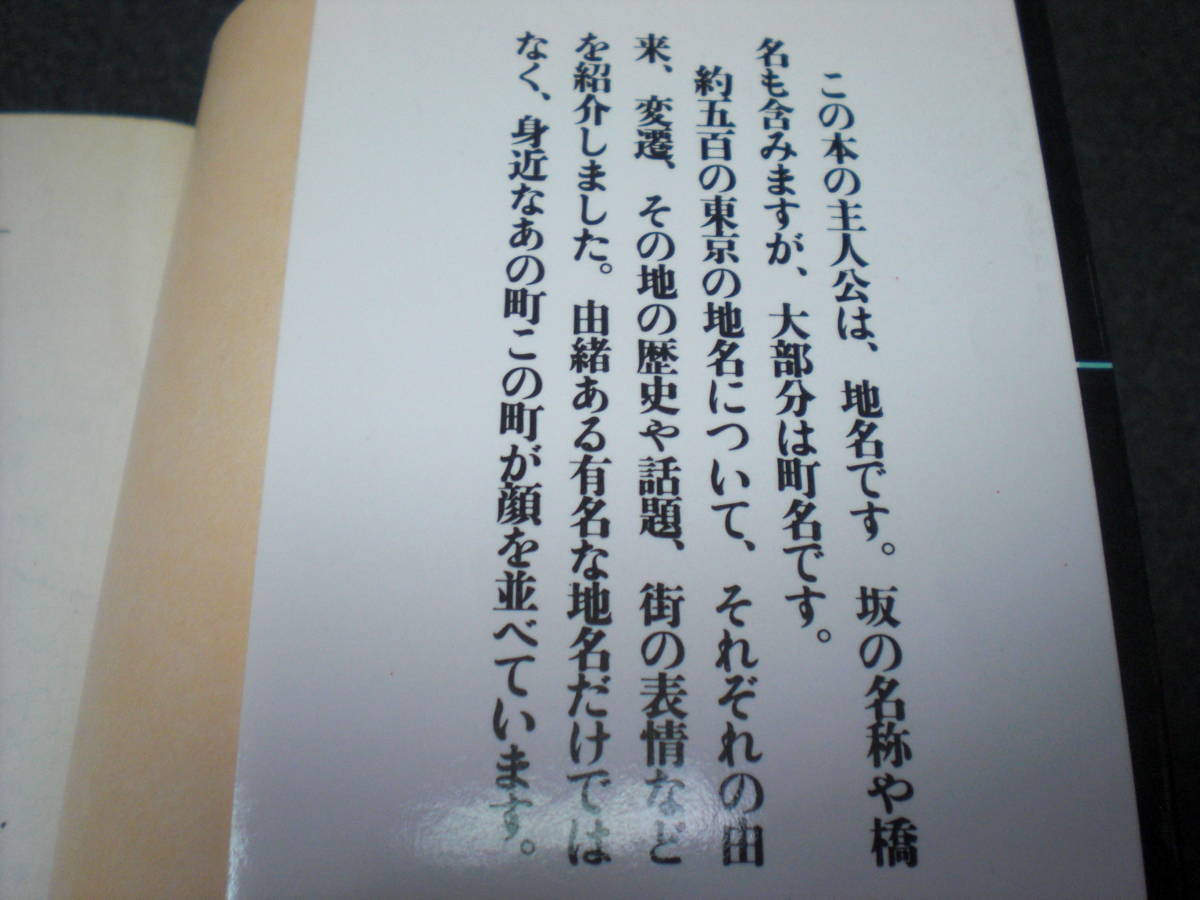 この本の主人公は、地名です。坂の名称や橋
名も含みますが、大部分は町名です。
約五百の東京の地名について、それぞれの由
来、変遷、その地の歴史や話題、街の表情など
を紹介しました。由緒ある有名な地名だけでは
なく、身近なあの町この町が顔を並べています。